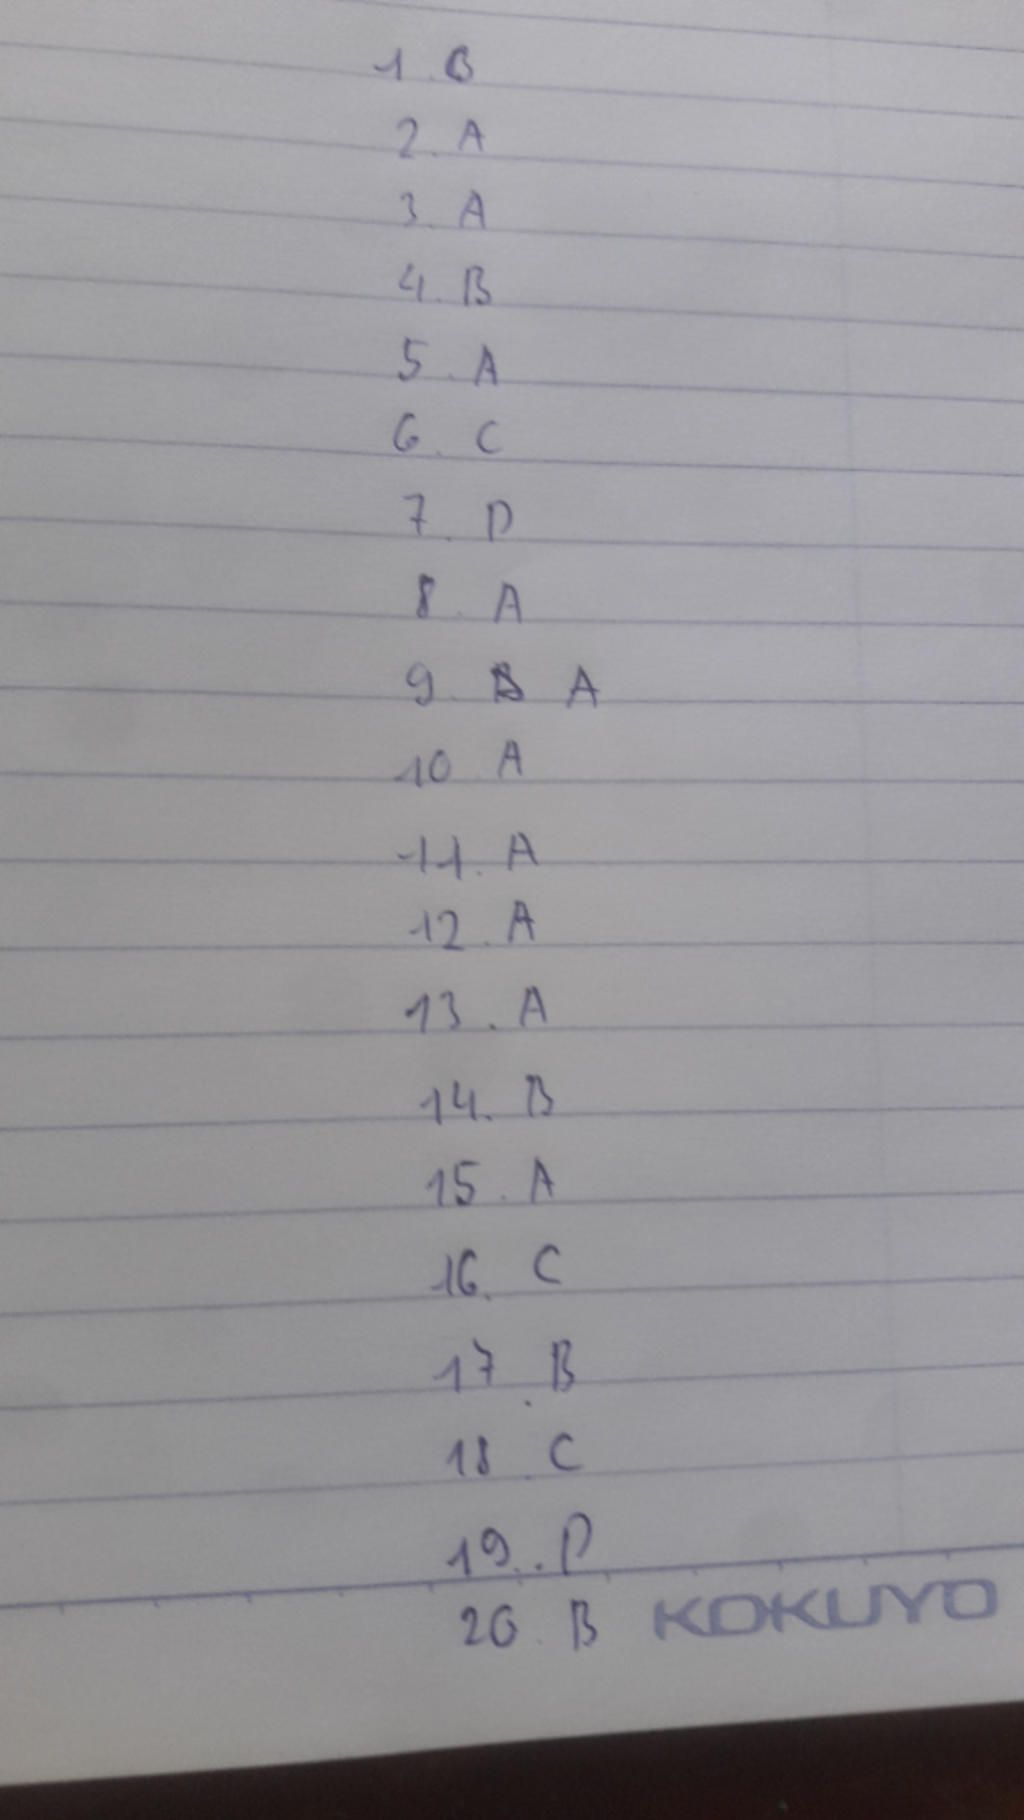 1. B
2. A
3. A
4. B
5. A
6. C
7. D
8. A
9. B A
10 A
11. A
12. A
13. A
14. B
15. A
16. C
17. B
18. C
19. D
20. B KOKUYO